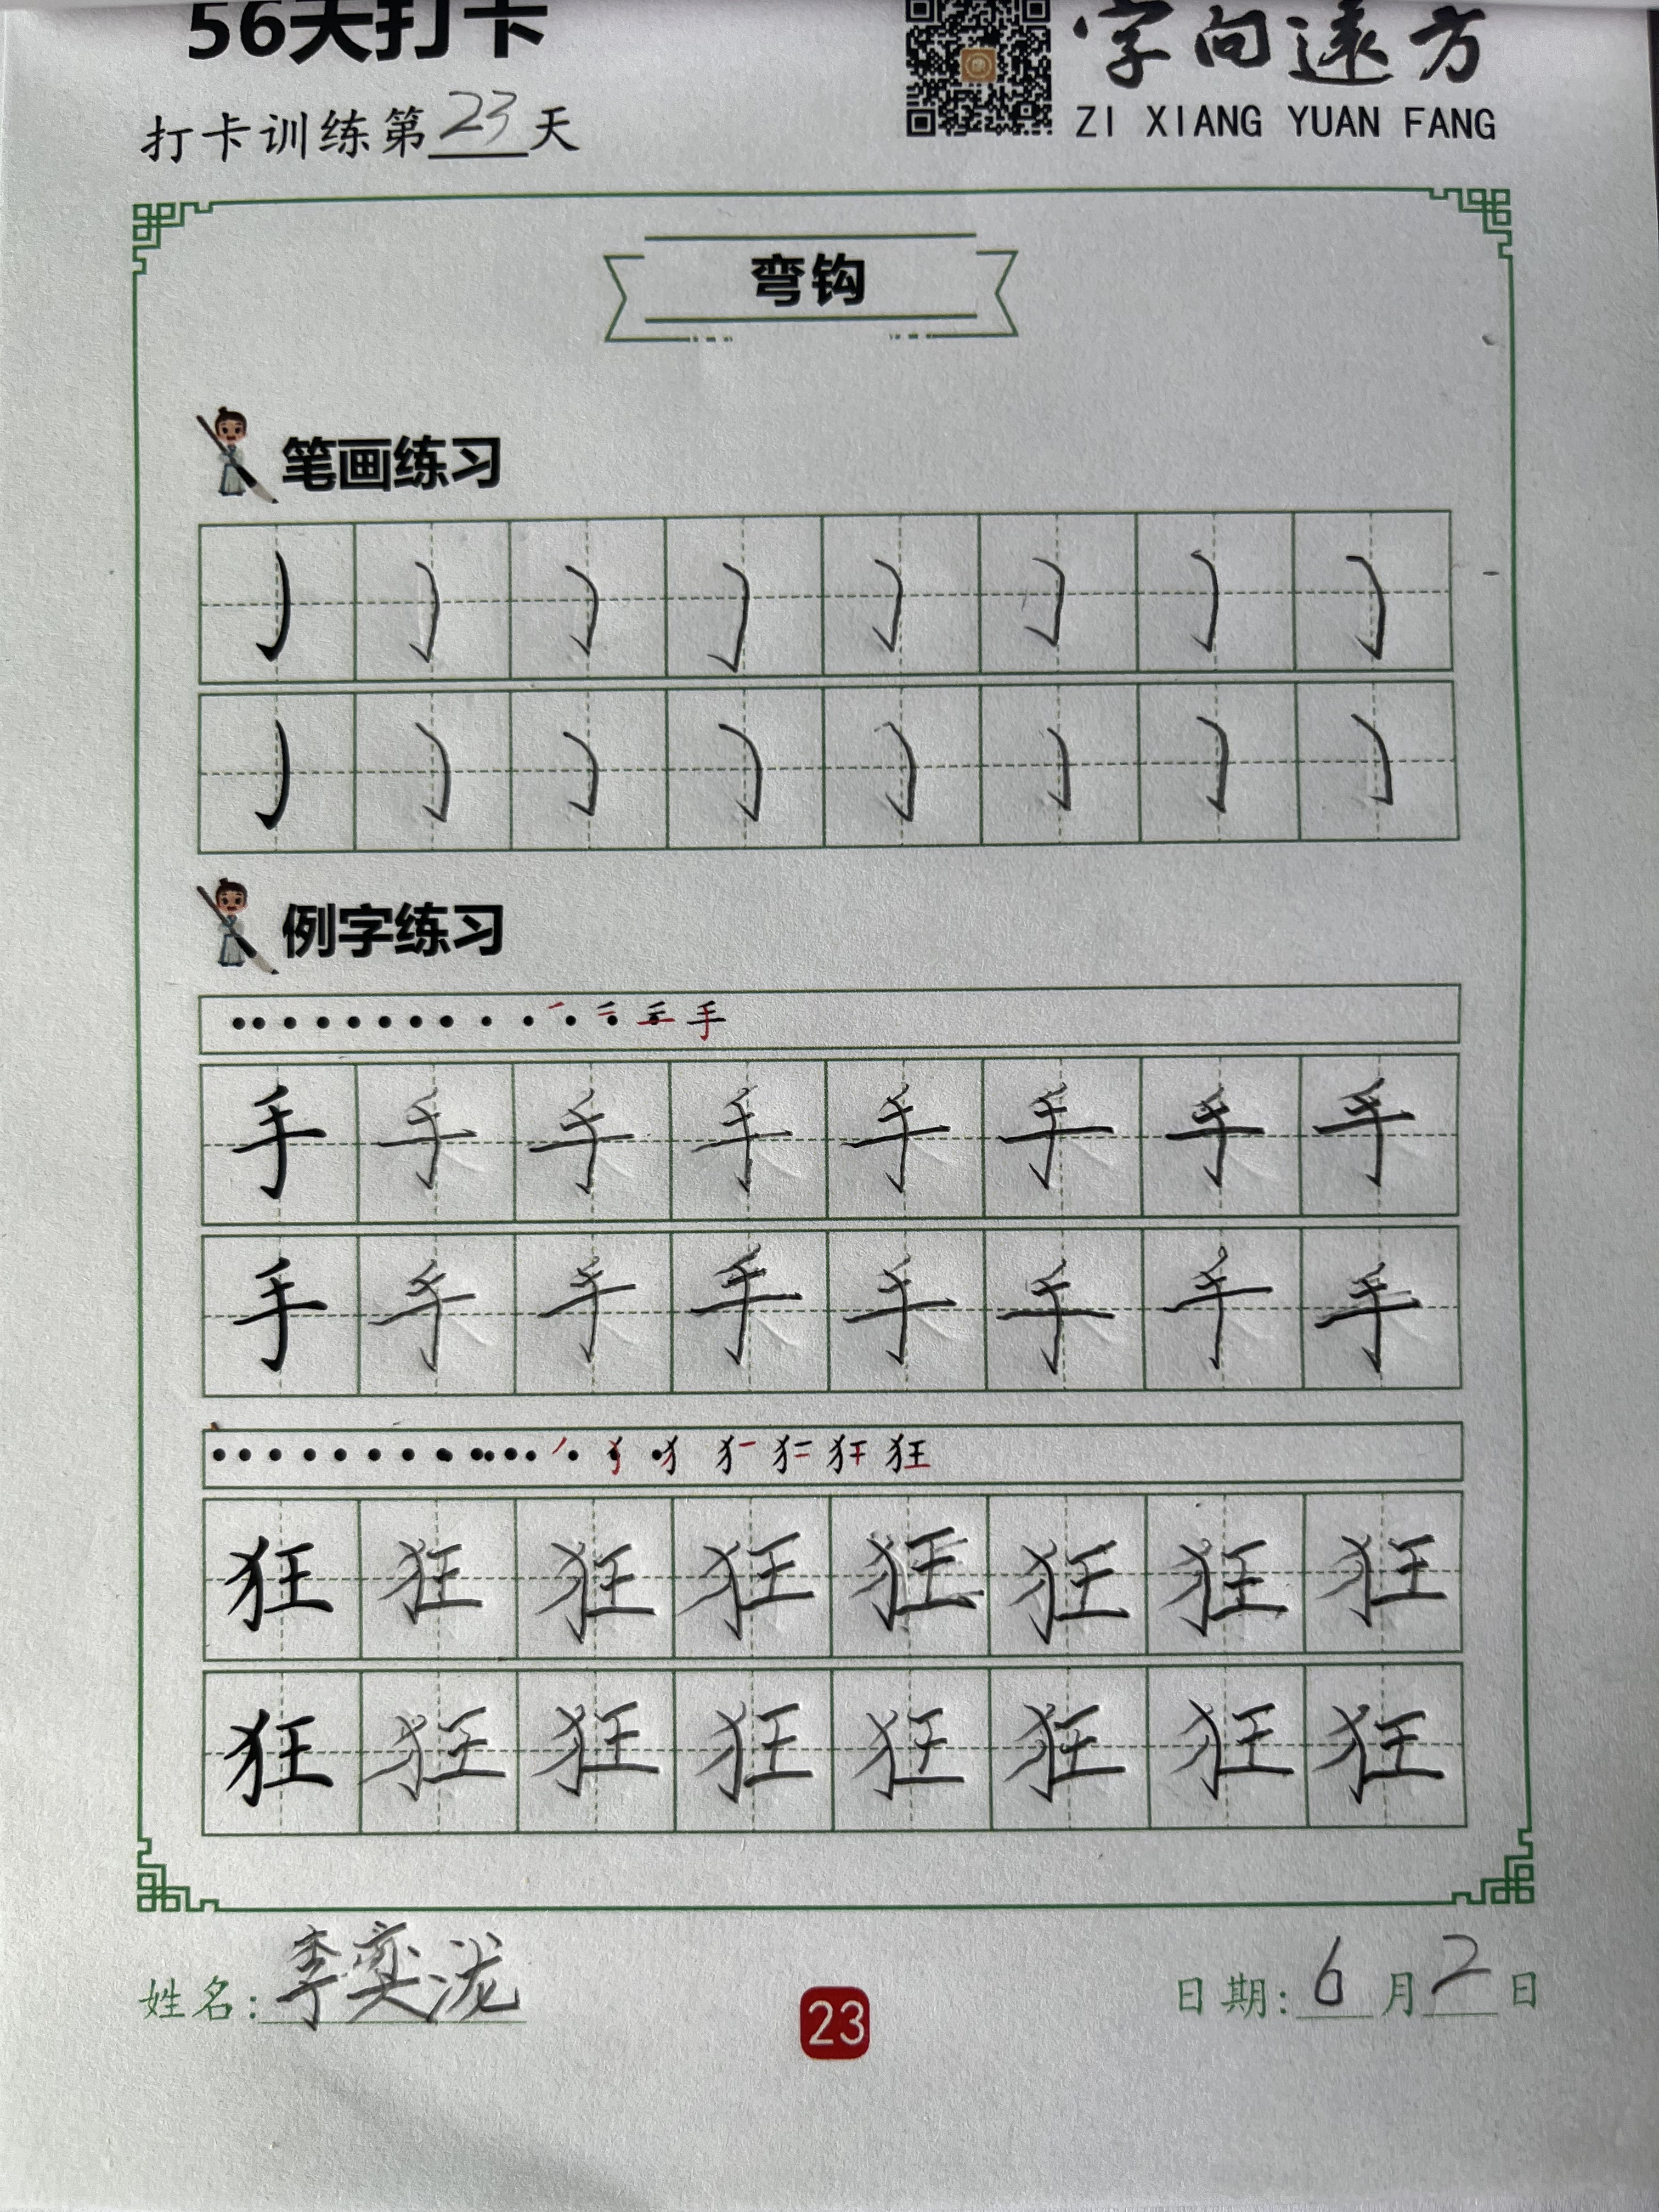 56天打卡
字向遠方
ZI XIANG YUAN FANG
打卡训练第23天
弯钩
笔画练习
例字练习
手
手手手手手手手手
手手手手手手手手
狂
狂狂狂狂狂狂狂狂
狂狂狂狂狂狂狂狂
姓名:李奕泷
23
日期:6月2日